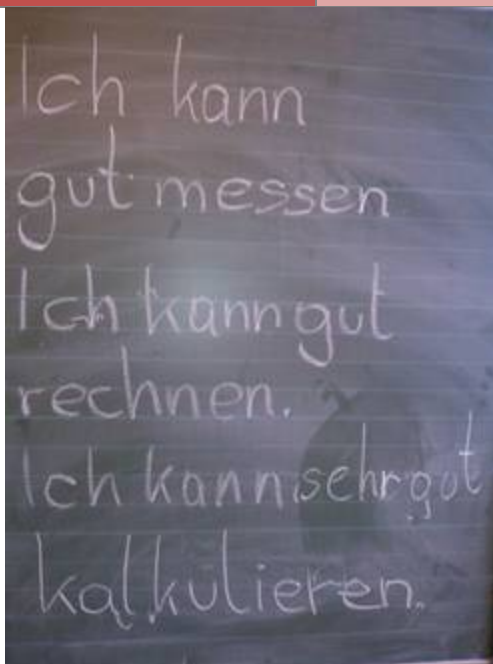 Ich kann
gut messen
Ich kann gut
rechnen.
Ich kann sehr gut
kalkulieren.